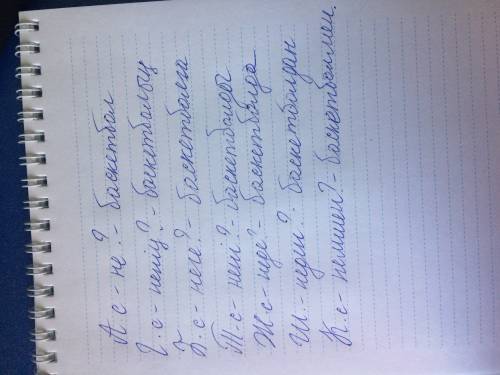 А.с - не? - баскетбол
І.с - нениң? - баскетболың
Б.с - неге? - баскетболға
Т.с - нені? - баскетболды
Ж.с - неде? - баскетболда
Ш. - неден? баскетболдан
К.с - немен? - баскетболмен.